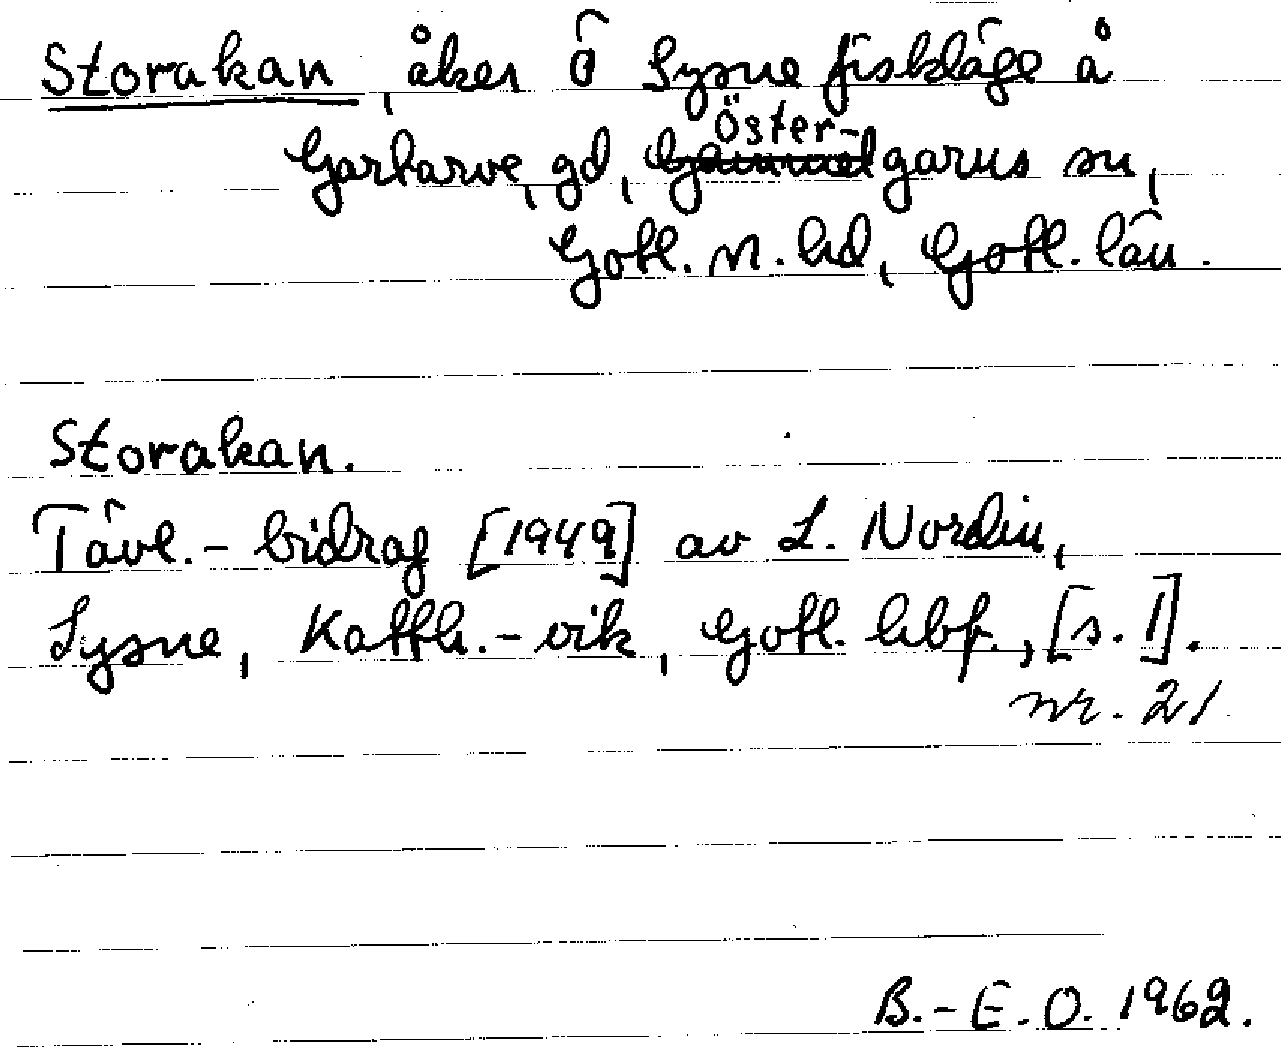 Storakan, åker ö Sysne fiskeläge å
Garbarve, gd, Östergarns sn,
Gotl. n. hd, Gotl. län.
Storakan.
Tävl.-bidrag [1949] av L. Nordin,
Sysne, Katth.-vik, Gotl. hbf., [s. 1].
nr. 21
B.-E.O. 1962.